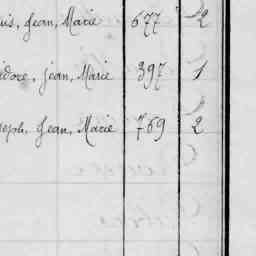 uis, Jean, Marie 677 2
idore, Jean, Marie 397 1
seph, Jean, Marie 769 2